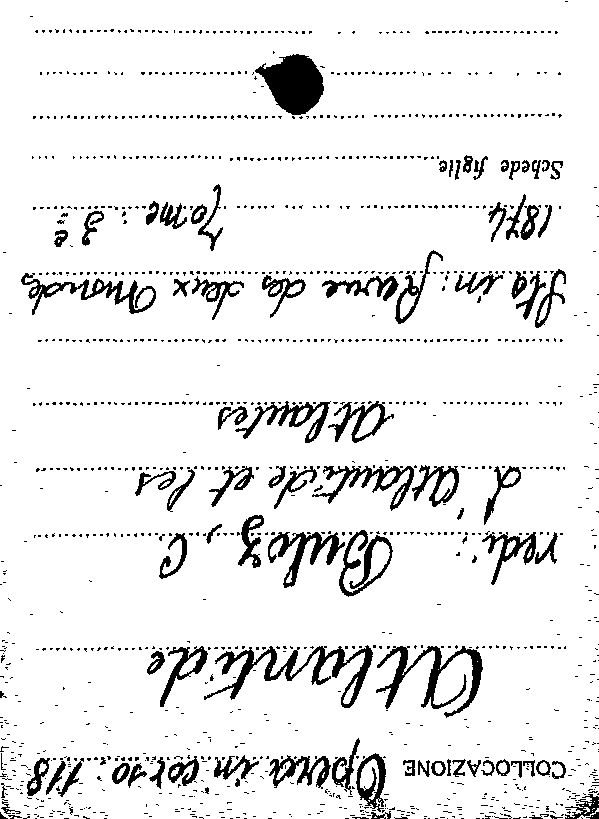 COLLOCAZIONE Opera in corso: 118
Atlantide
vedi: Buloz, C.
L'Atlantide et les
Atlantes
Sta in: Revue des deux Mondes,
1874 Tome: 3e
Schede figlie